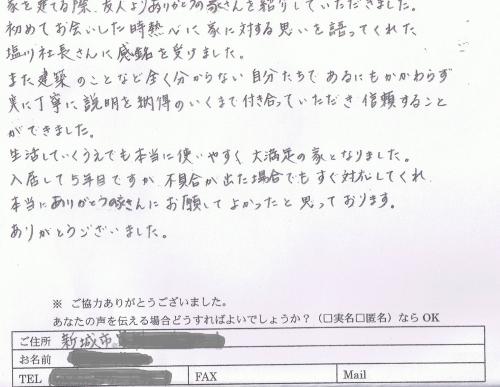 家を建てる際、友人よりありがとうの家さんを紹介していただきました。
初めてお会いした時熱心に家に対する思いを語ってくれた
塩川社長さんに感銘を受けました。
また建築のことなど全く分からない自分たちであるにもかかわらず
実に丁寧に説明を納得のいくまで付き合っていただき信頼すること
ができました。
生活していくうえでも本当に使いやすく大満足の家となりました。
入居して5年目ですが不具合が出た場合でもすぐ対応してくれ
本当にありがとうの家さんにお願してよかったと思っております。
ありがとうございました。
※ ご協力ありがとうございました。
あなたの声を伝える場合どうすればよいでしょうか?(□実名□匿名)なら OK
ご住所 新城市
お名前
TEL FAX Mail